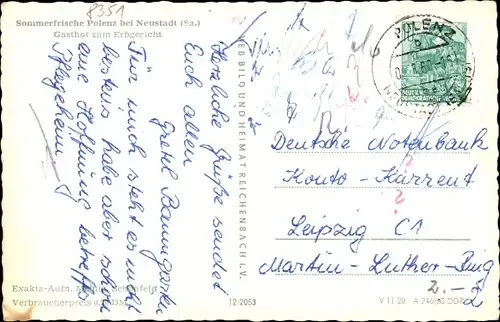 8351
Sommerfrische Polenz bei Neustadt (Sa.)
Gasthof zum Erbgericht
Herzliche Grüße sendet
Euch allen
Gretel Baumgarten
Für mich steht es nicht
bestens habe aber schon
eine Hoffnung betreffs
Pflegeheim
VEB BILD UND HEIMAT REICHENBACH i. V.
POLENZ
DEUTSCHE
DEMOKRATISCHE
Deutsche Notenbank
Konto-Karrent
Leipzig C1
Martin-Luther-Ring
2.-
Exakta-Aufn.
Verbraucherpreis
12/2053
V 11 28 A 246/60 DDR